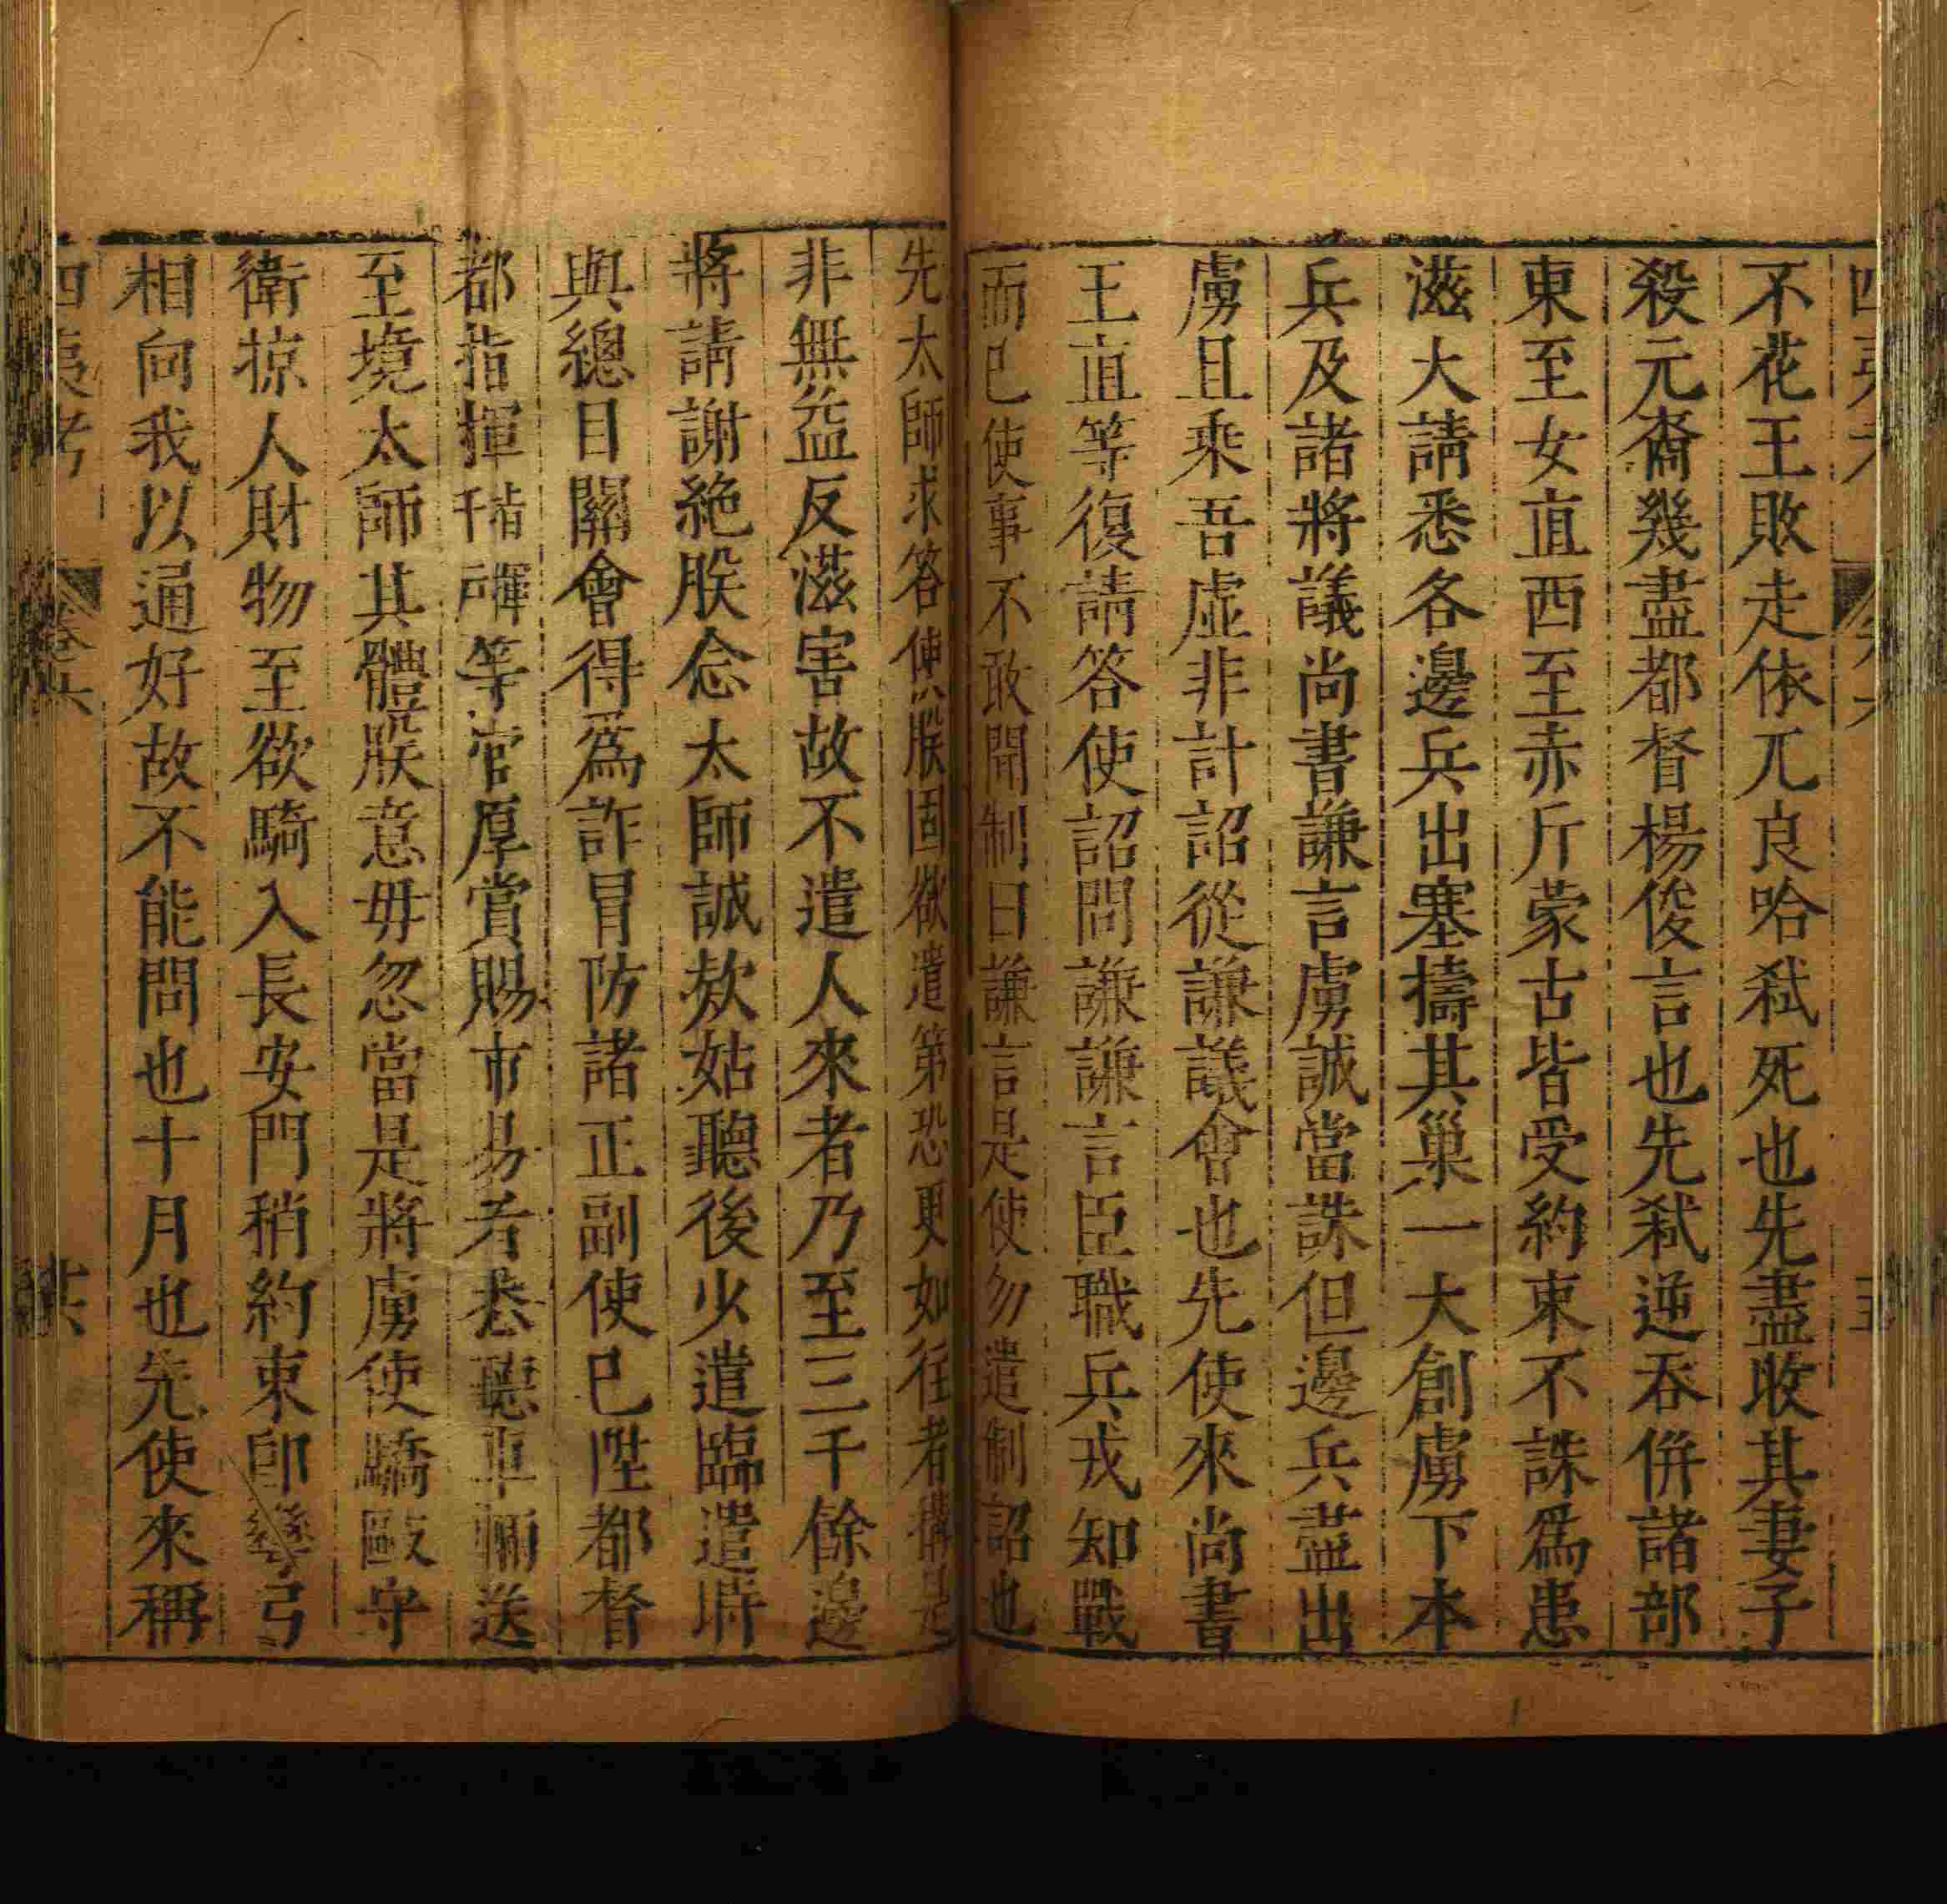 不花王敗走依兀良哈弒死也先盡收其妻子
殺元裔幾盡都督楊俊言也先弒逆吞併諸部
東至女直西至赤斤蒙古皆受約束不誅為患
滋大請悉各邊兵出塞擣其巢一大創虜下本
兵及諸將議尚書謙言虜誠當誅但邊兵盡出
虜且乘吾虛非計詔從謙議會也先使來尚書
王直等復請答使詔問謙謙言臣職兵戎知戰
而已使事不敢聞制曰謙言是使勿遣制詔也
先太師求答使朕固欲遣第恐更如往者搆
非無益反滋害故不遣人來者乃至三千餘邊
將請謝絕朕念太師誠欵姑聽後少遣臨遣時
與總目關會得為詐冒防諸正副使巳陞都督
都指揮千百戶等官厚賞賜市易者悉聽車輛送
至境太師其體朕意毋忽當是將虜使驕毆守
衛掠人財物至欲騎入長安門稍約束即彎弓
相向我以通好故不能問也十月也先使來稱
四夷考